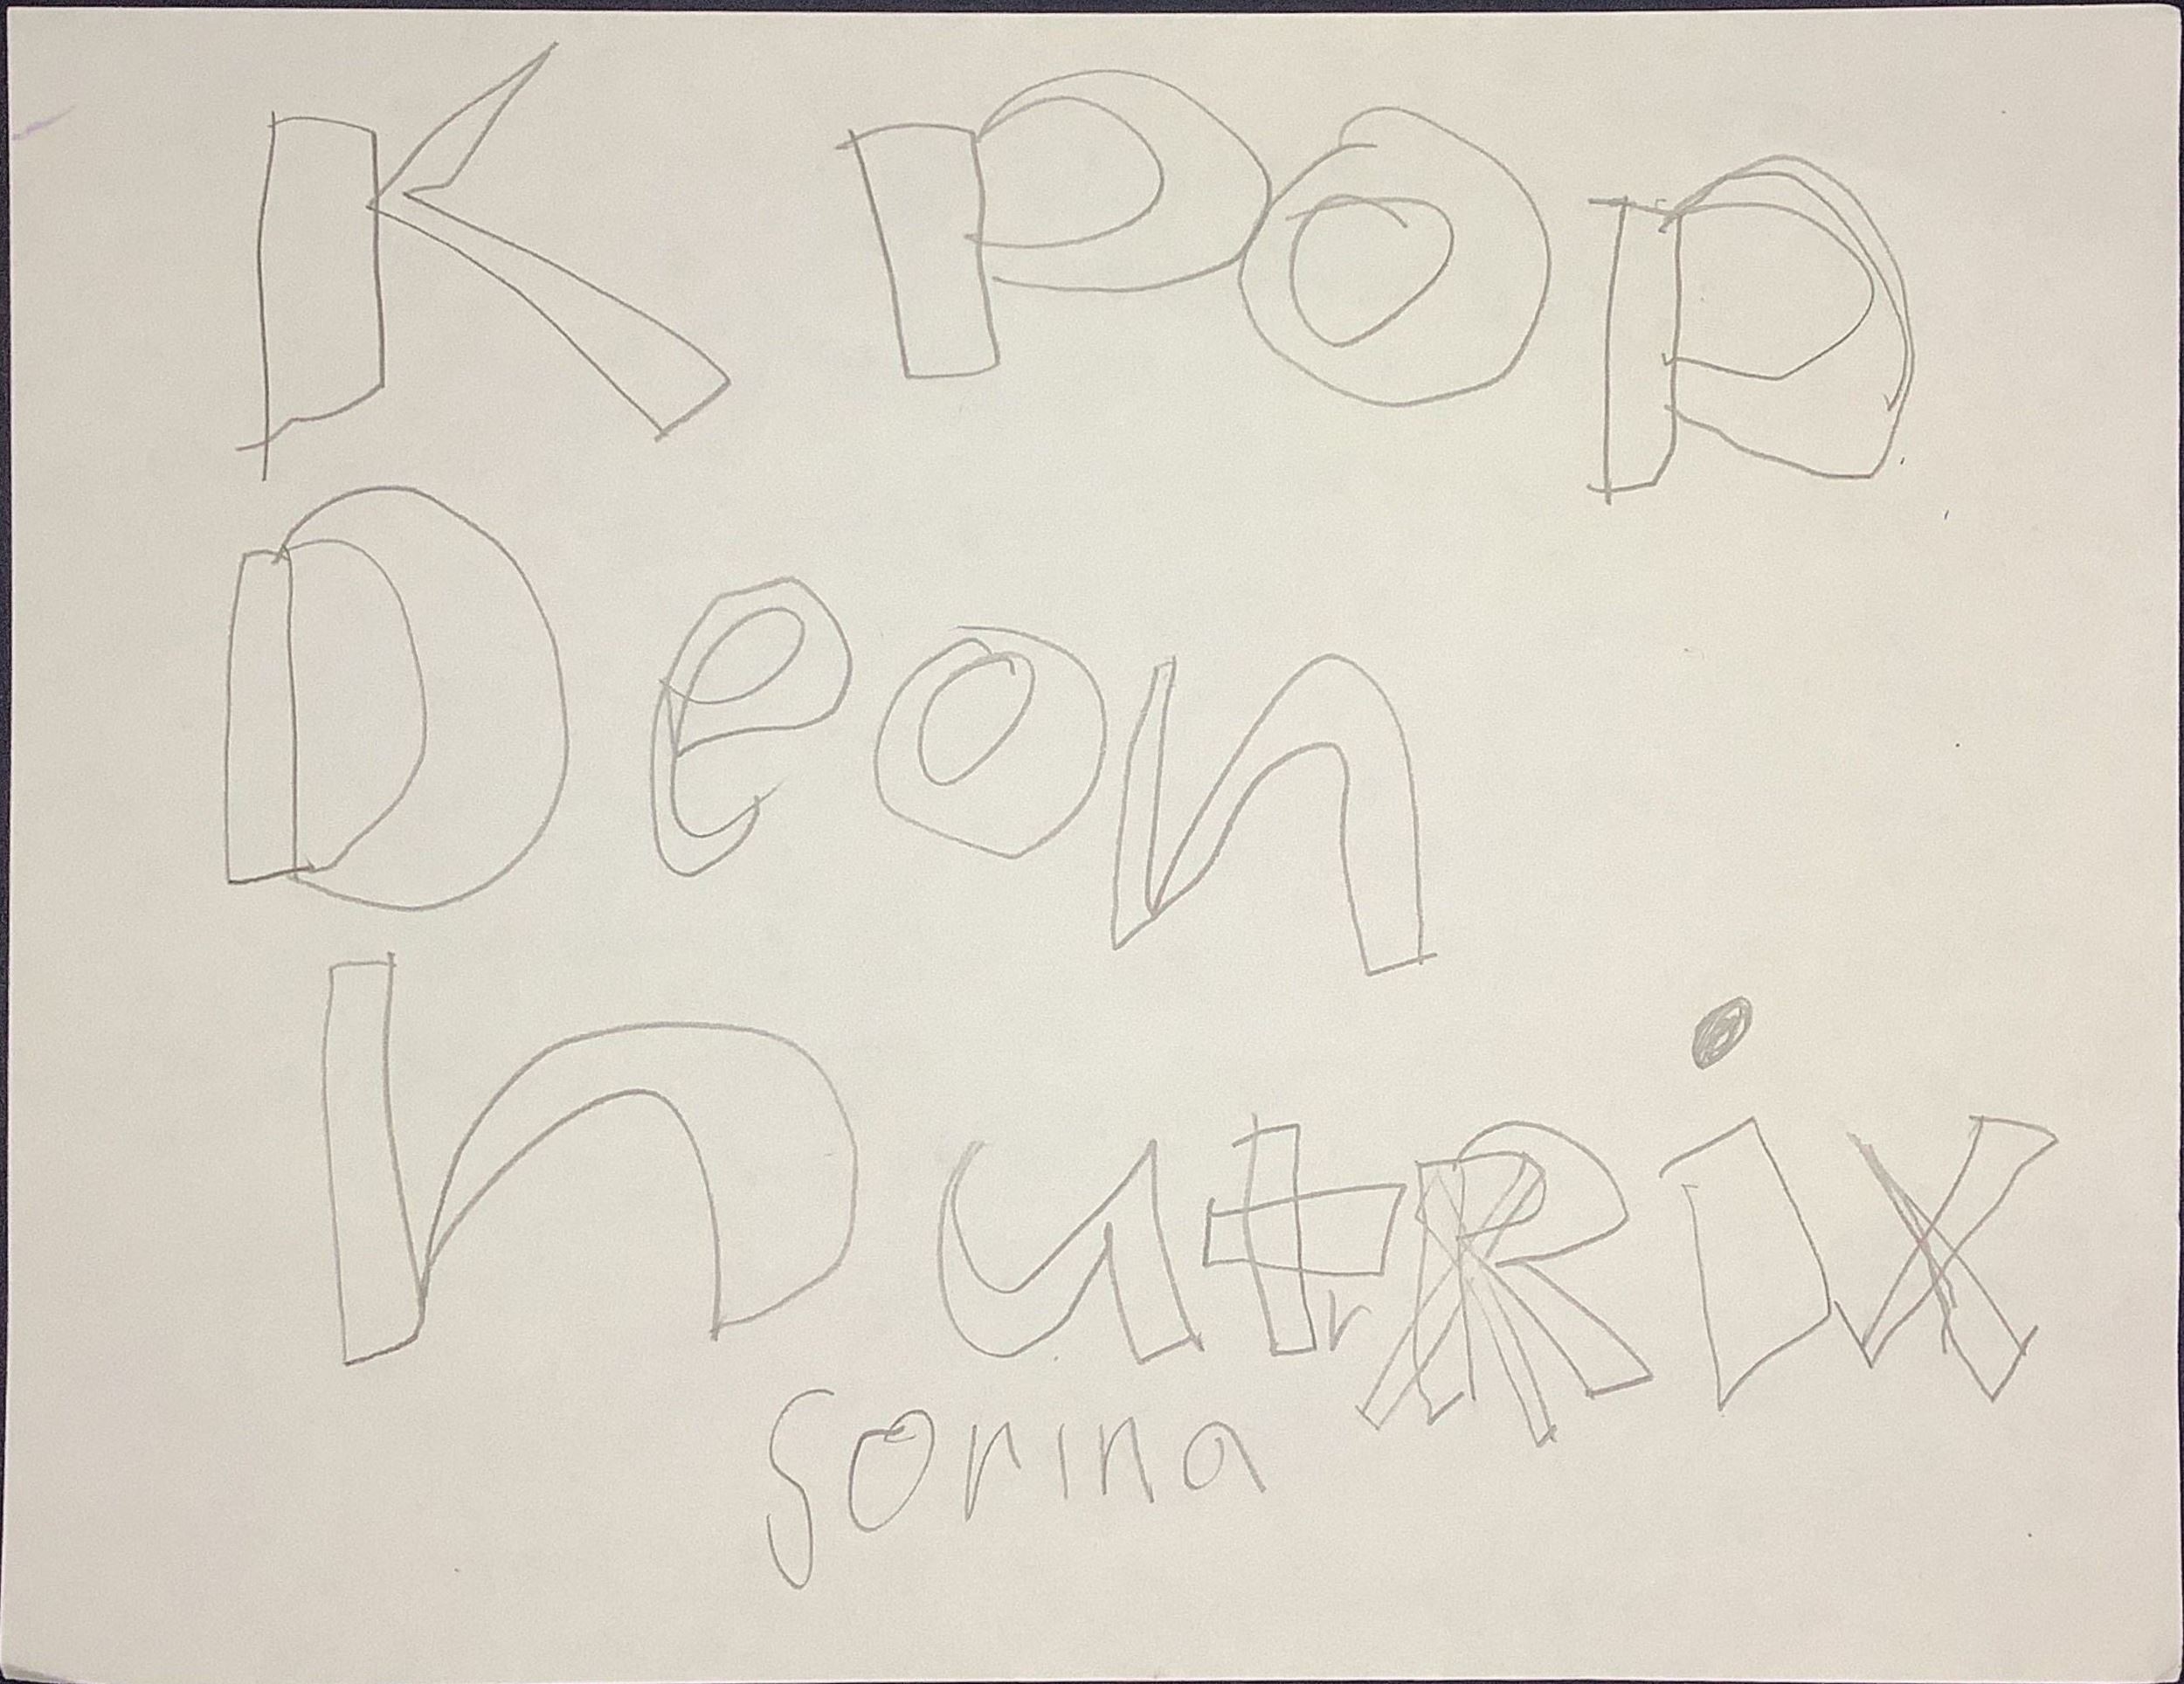 K Pop
Deon
hutRix
Sorina